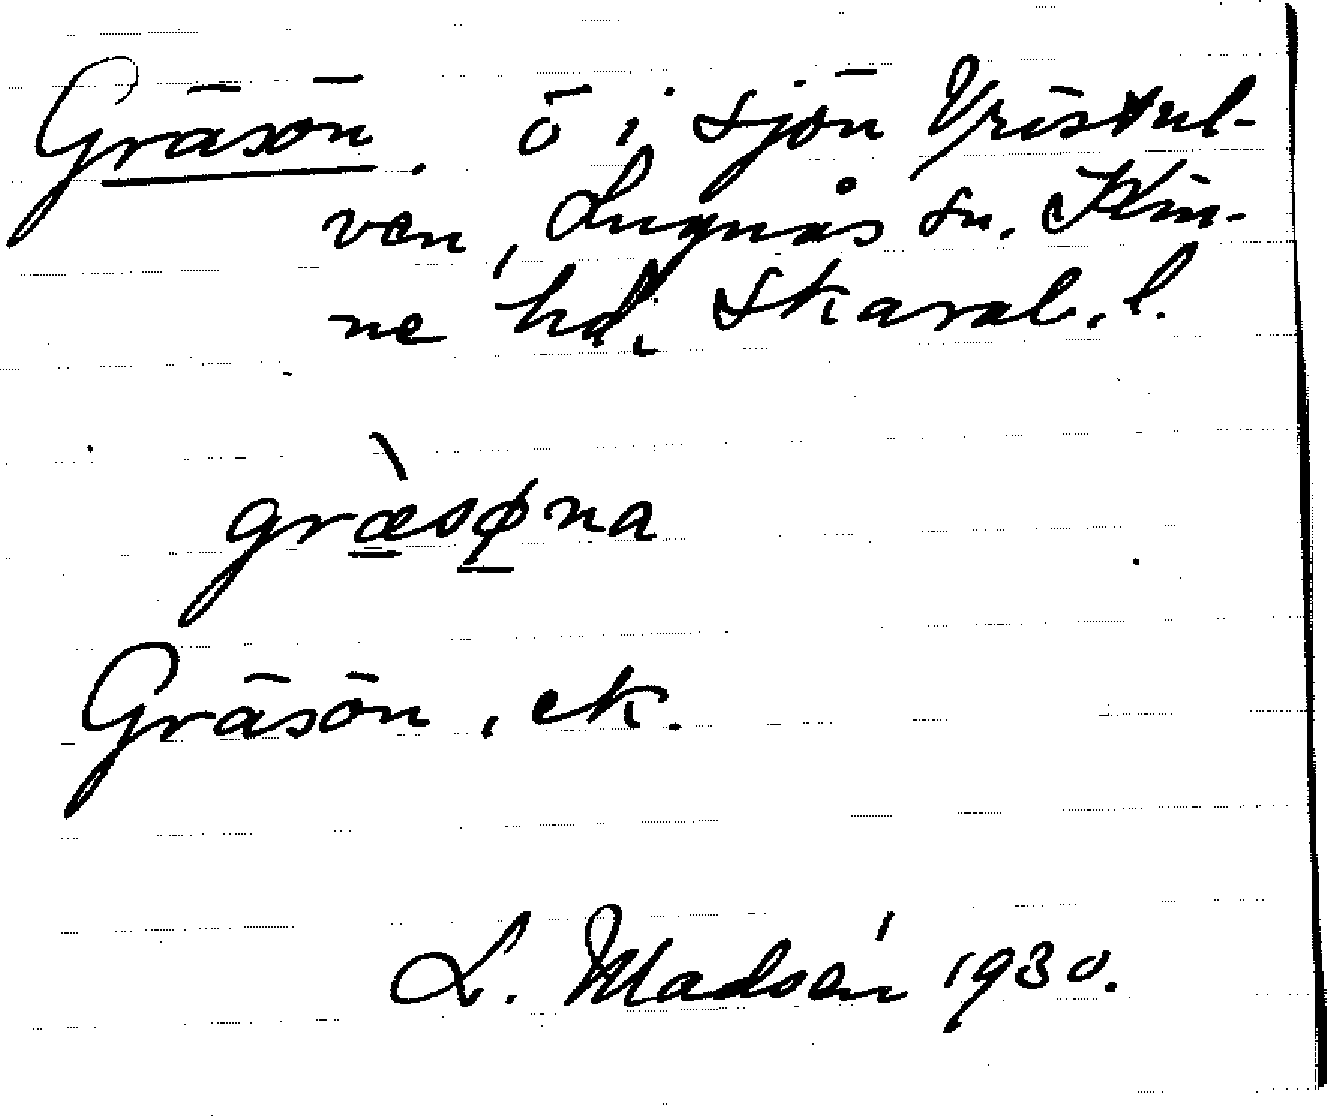 Gräsön. ö i sjön Vristul-
ven, Lugnås sn. Kin-
ne hd, Skarab. l.
græ̀søna
Gräsön, ek.
L. Madsén 1930.